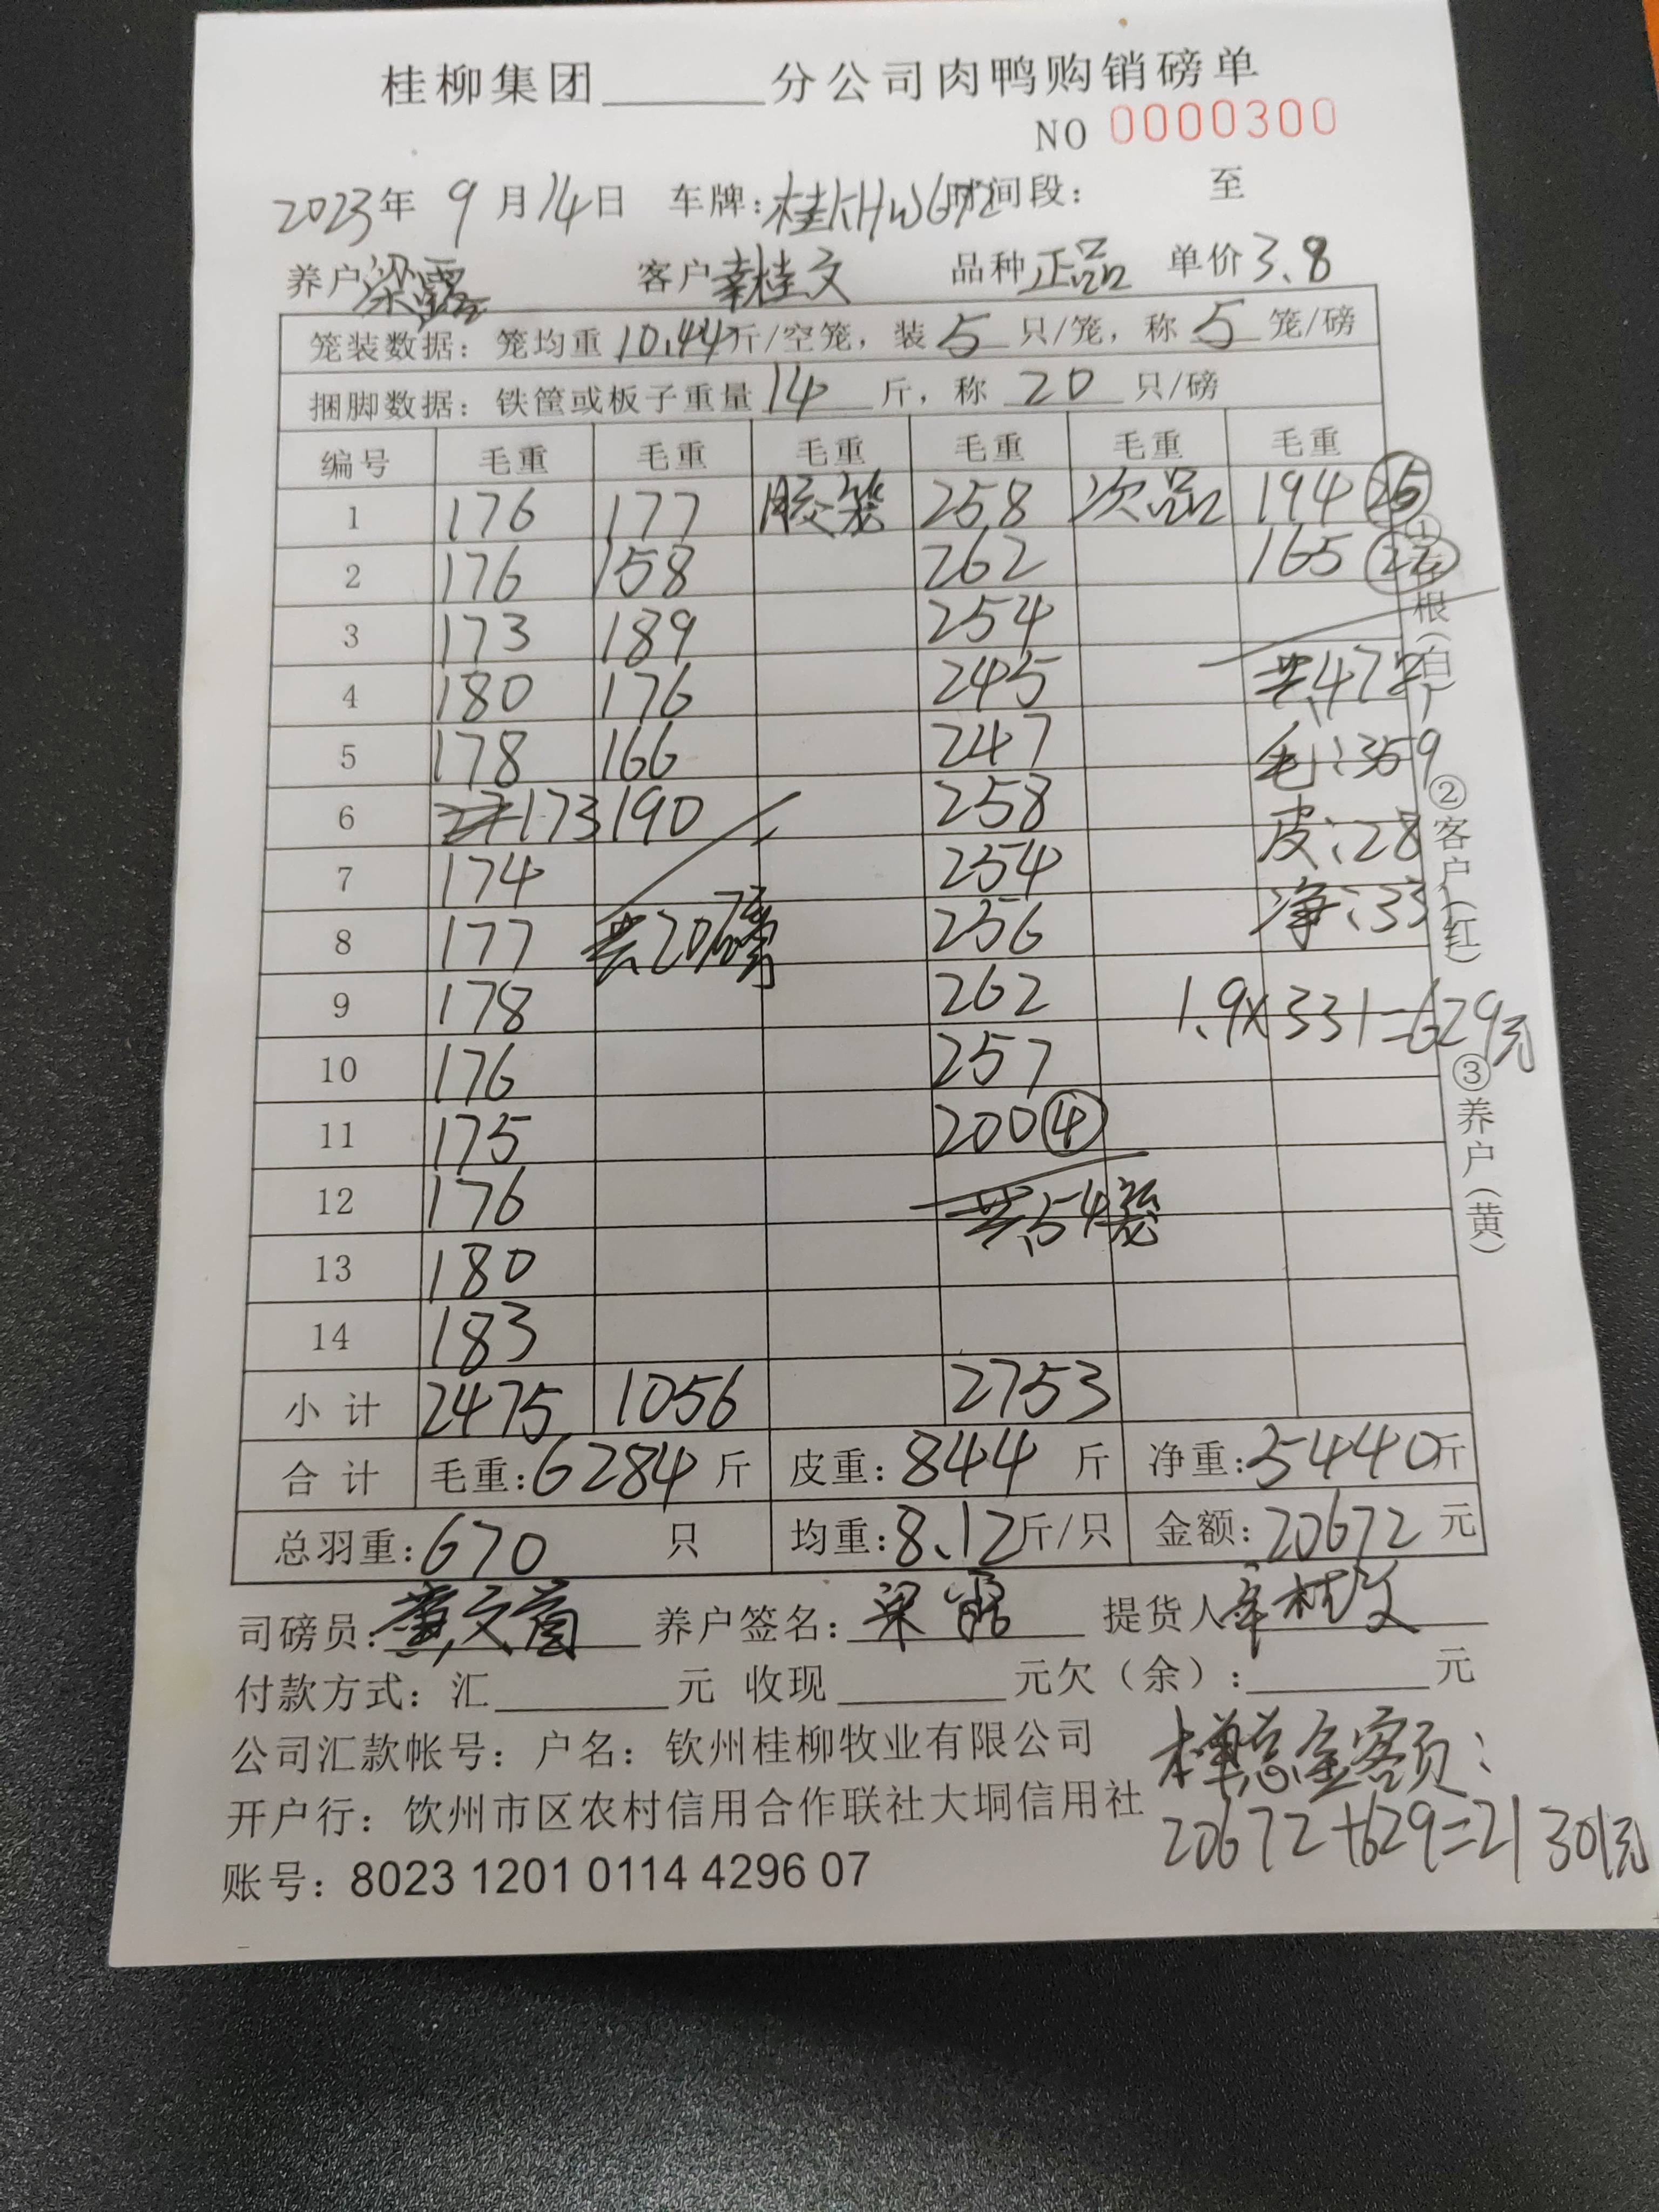 桂柳集团______分公司肉鸭购销磅单
NO 0000300
2023年 9月14日 车牌:桂KHW672 时间段: 至
养户梁露 客户辜桂文 品种正品 单价3.8
笼装数据: 笼均重10.44斤/空笼, 装5只/笼, 称5笼/磅
捆脚数据: 铁筐或板子重量14斤, 称20只/磅
编号 毛重 毛重 毛重 毛重 毛重 毛重
1 176 177 胶笼 258 次品 194 25
2 176 158 262 165 22
3 173 189 254
4 180 176 245 共47只
5 178 166 247 毛:359
6 173 190 258 皮:28
7 174 254 净:331
8 177 共20磅 256
9 178 262 1.9×331=629元
10 176 257
11 175 200 ④
12 176 共54笼
13 180
14 183
小计 2475 1056 2753
合计 毛重:6284斤 皮重:844斤 净重:5440斤
总羽重:670只 均重:8.12斤/只 金额:20672元
①存根(白) ②客户(红) ③养户(黄)
司磅员: 养户签名: 梁露 提货人
付款方式: 汇______元 收现______元欠(余):______元
公司汇款帐号: 户名: 钦州桂柳牧业有限公司
开户行: 钦州市区农村信用合作联社大垌信用社
账号: 8023 1201 0114 4296 07
本单总金额:
20672+629=21301元